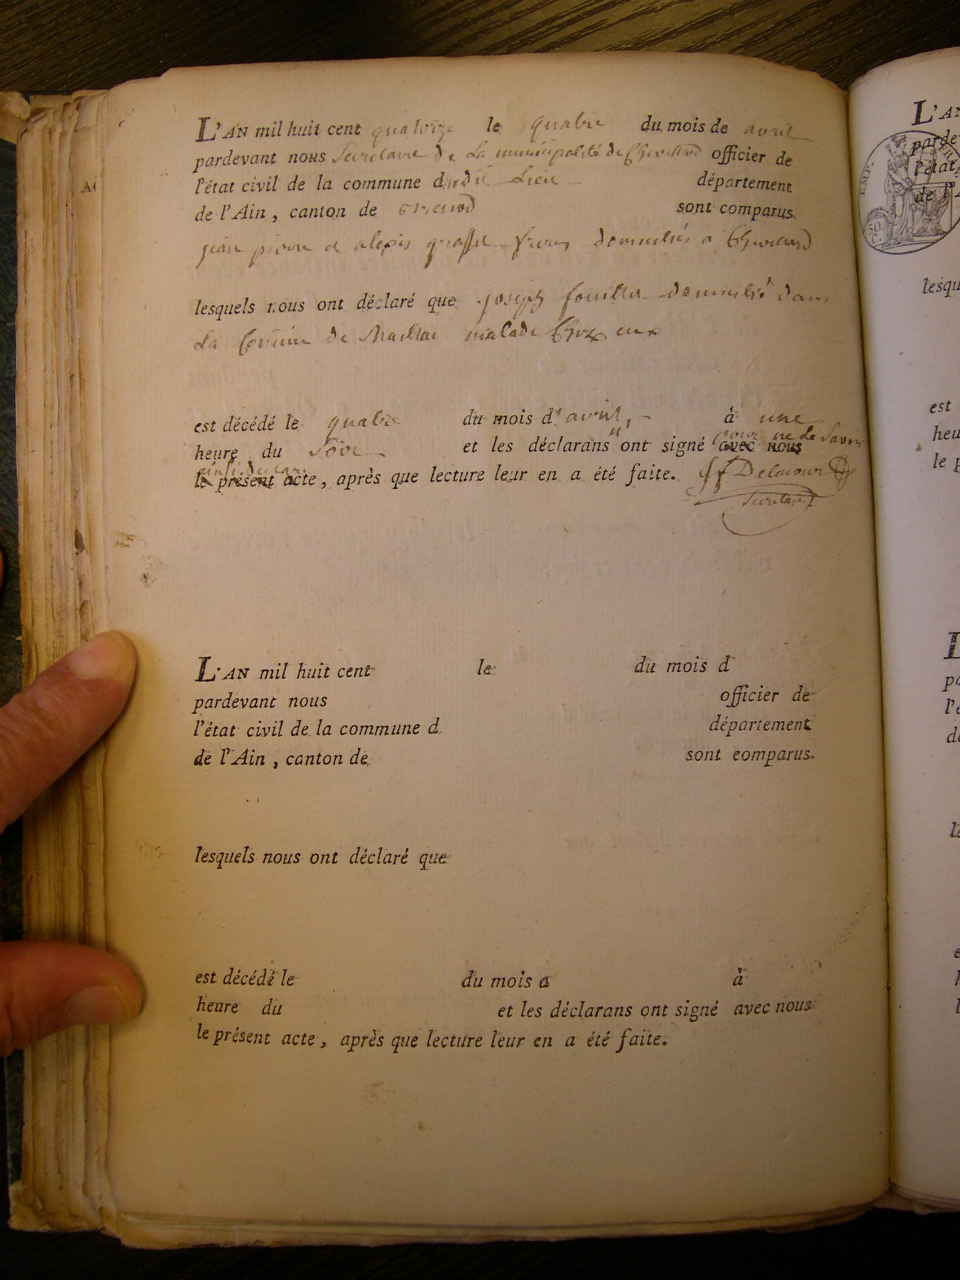 L'AN mil huit cent quatorze le quatre du mois de avril
pardevant nous Secretaire de La municipalité de officier de
l'état civil de la commune dudit Lieu département
de l'Ain, canton de sont comparus
jean pierre et alexis freres domiciliés a
lesquels nous ont déclaré que joseph domicilié dans
La de malade chez eux
est décédé le quatre du mois d'avril, à une
heure du Soir et les déclarans ont signé avec nous pour ne le Savoir
le présent acte, après que lecture leur en a été faite. Delacour
Secretaire
L'AN mil huit cent le du mois d
pardevant nous officier de
l'état civil de la commune d département
de l'Ain, canton de sont comparus
lesquels nous ont déclaré que
est décédé le du mois d à
heure du et les déclarans ont signé avec nous
le présent acte, après que lecture leur en a été faite.
L'AN
pardev
l'état
de l'A
lesqu
est
heu
le p
L
EMP.
30.